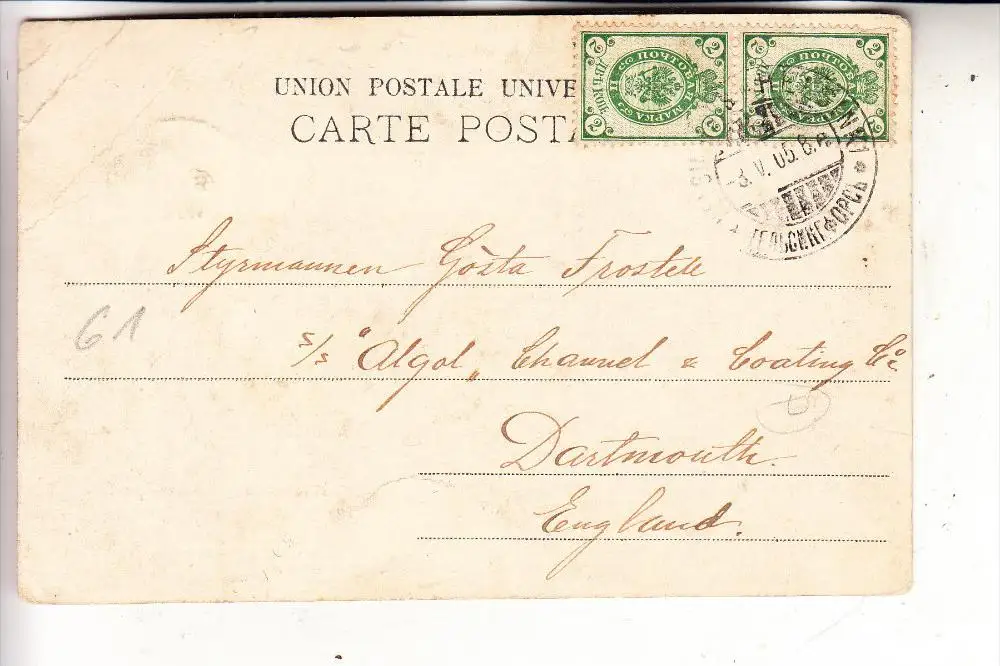 UNION POSTALE UNIVE
CARTE POSTA
2 2
ПОЧТОВАЯ МАРКА
2 2
2 2
ПОЧТОВАЯ МАРКА
2
3.V.05.8.
ГЕЛЬСИНГФОРСЪ
Styrmannen Gösta Frostell
s/s "Algol" Channel & Coating Co
Dartmouth.
England.
61
5